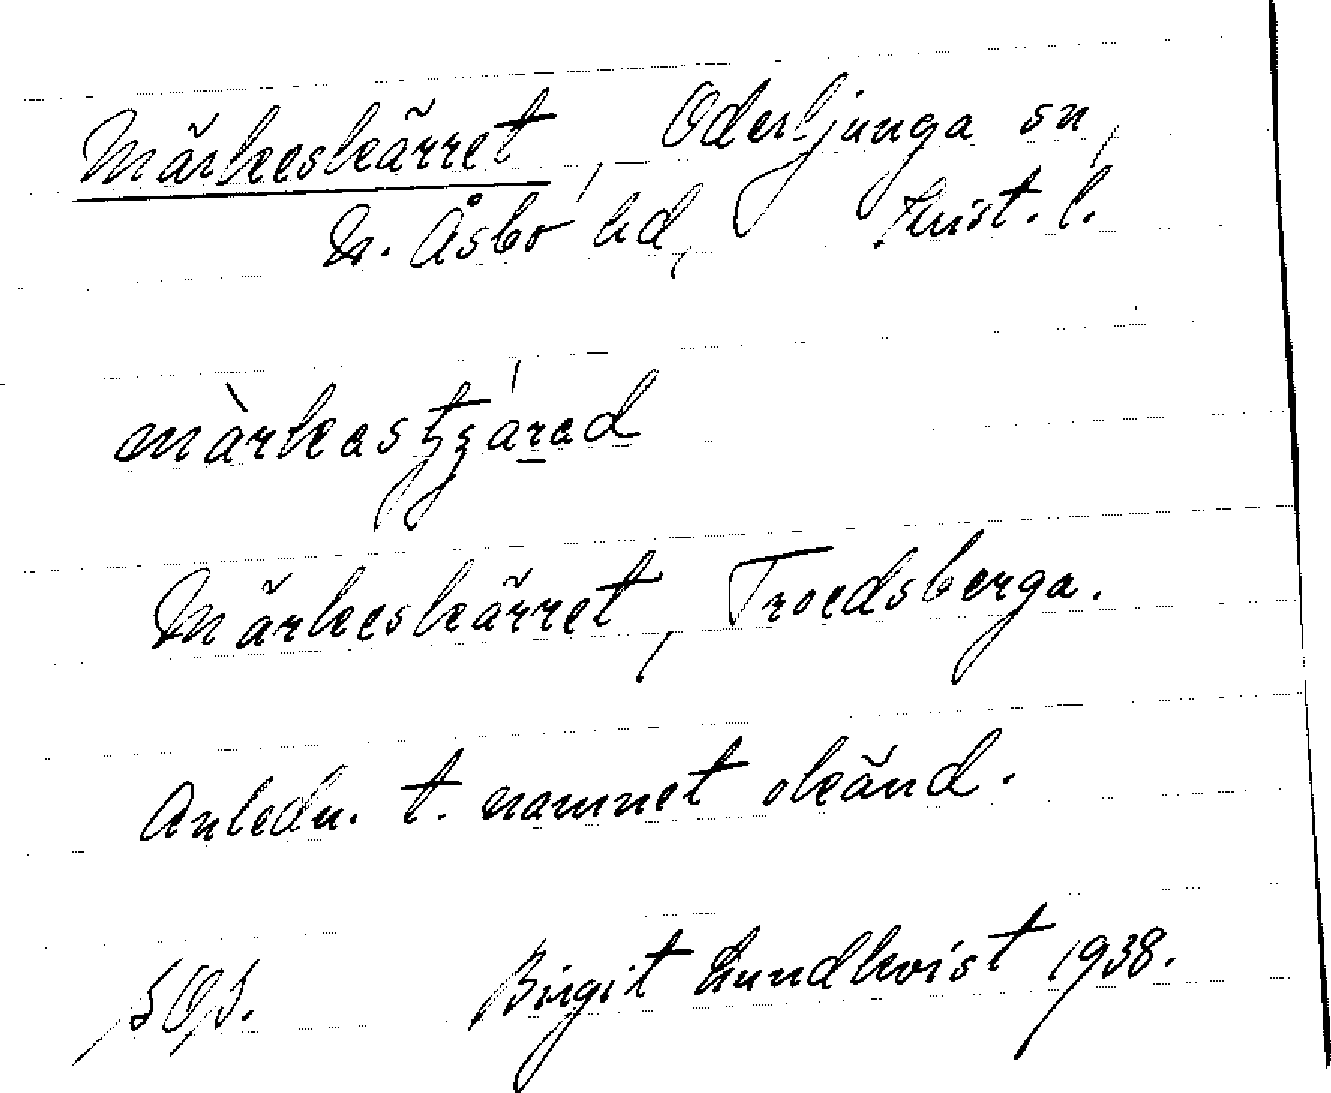 Märkeskärret, Oderljunga sn,
N. Åsbo hd, Krist. l.
Märkeskärret, Troedsberga.
Anledn. t. namnet okänd.
Birgit Lundkvist 1938.